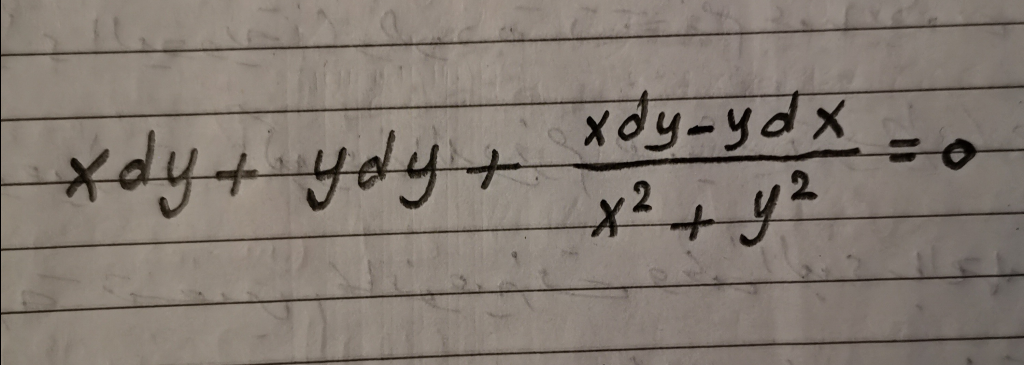 xdy + ydy + \frac{xdy - ydx}{x^2 + y^2} = 0